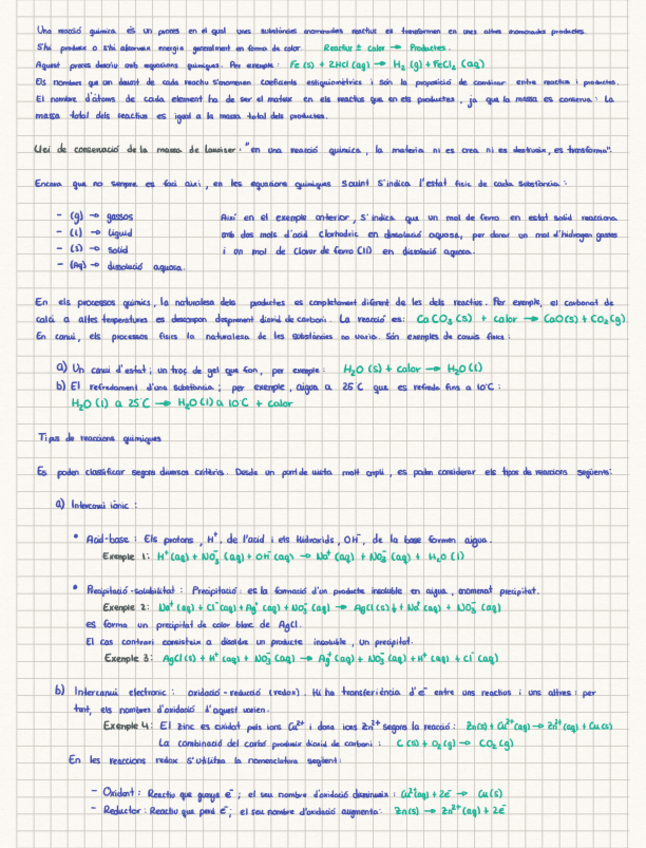 Una reacció química és un procés en el qual unes substàncies anomenades reactius es transformen en unes altres anomenades productes.
S'hi produeix o s'hi absorveix energia generalment en forma de calor. Reactius ± calor → Productes.
Aquest procés descriu amb equacions químiques. Per exemple: Fe(s) + 2HCl(aq) → H₂(g) + FeCl₂(aq)
Els nombres que van davant de cada reactiu s'anomenen coeficients estequiomètrics i són la proporció de combinar entre reactius i productes.
El nombre d'àtoms de cada element ha de ser el mateix en els reactius que en els productes, ja que la massa es conserva: La
massa total dels reactius es igual a la massa total dels productes.
Llei de conservació de la massa de Lavoisier: "en una reacció química, la matèria ni es crea ni es destrueix, es transforma".
Encara que no sempre es faci així, en les equacions químiques sovint s'indica l'estat físic de cada substància:
- (g) → gasos
Així en el exemple anterior, s'indica que un mol de ferro en estat solid reacciona
- (l) → líquid
amb dos mols d'àcid clorhídric en dissolució aquosa, per donar un mol d'hidrogen gasós
- (s) → solid
i un mol de clorur de ferro (II) en dissolució aquosa.
- (Aq) → dissolució aquosa.
En els processos químics, la naturalesa dels productes es completament diferent de les dels reactius. Per exemple, el carbonat de
calci a altes temperatures es descompon desprenent dioxid de carboni. La reacció es: CaCO₃(s) + calor → CaO(s) + CO₂(g)
En canvi, els processos físics la naturalesa de les substàncies no varia. Són exemples de canvis físics:
a) Un canvi d'estat; un troç de gel que fon, per exemple: H₂O(s) + calor → H₂O(l)
b) El refredament d'una substància; per exemple, aigua a 25°C que es refreda fins a 10°C:
H₂O(l) a 25°C → H₂O(l) a 10°C + calor
Tipus de reaccions químiques
Es poden classificar segons diversos criteris. Desde un punt de vista molt ampli, es poden considerar els tipos de reaccions següents:
a) Intercanvi iònic:
• Acid-base: Els protons, H⁺, de l'acid i els hidroxids, OH⁻, de la base formen aigua.
Exemple 1: H⁺(aq) + NO₃⁻(aq) + OH⁻(aq) → Na⁺(aq) + NO₃⁻(aq) + H₂O(l)
• Precipitació-solubilitat: Precipitació: es la formació d'un producte insoluble en aigua, anomenat precipitat.
Exemple 2: Na⁺(aq) + Cl⁻(aq) + Ag⁺(aq) + NO₃⁻(aq) → AgCl(s)↓ + Na⁺(aq) + NO₃⁻(aq)
es forma un precipitat de color blanc de AgCl.
El cas contrari consisteix a disoldre un producte insoluble, un precipitat.
Exemple 3: AgCl(s) + H⁺(aq) + NO₃⁻(aq) → Ag⁺(aq) + NO₃⁻(aq) + H⁺(aq) + Cl⁻(aq)
b) Intercanvi electronic: oxidació-reducció (redox). Hi ha transferència d'e⁻ entre uns reactius i uns altres: per
tant, els nombres d'oxidació d'aquest varien.
Exemple 4: El zinc es oxidat pels ions Cu²⁺ i dona ions Zn²⁺ segons la reacció: Zn(s) + Cu²⁺(aq) → Zn²⁺(aq) + Cu(s)
La combinació del carbó produeix dioxid de carboni: C(s) + O₂(g) → CO₂(g)
En les reaccions redox s'utilitza la nomenclatura següent:
- Oxidant: Reactiu que guanya e⁻; el seu nombre d'oxidació disminueix: Cu²⁺(aq) + 2e⁻ → Cu(s)
- Reductor: Reactiu que perd e⁻; el seu nombre d'oxidació augmenta: Zn(s) → Zn²⁺(aq) + 2e⁻